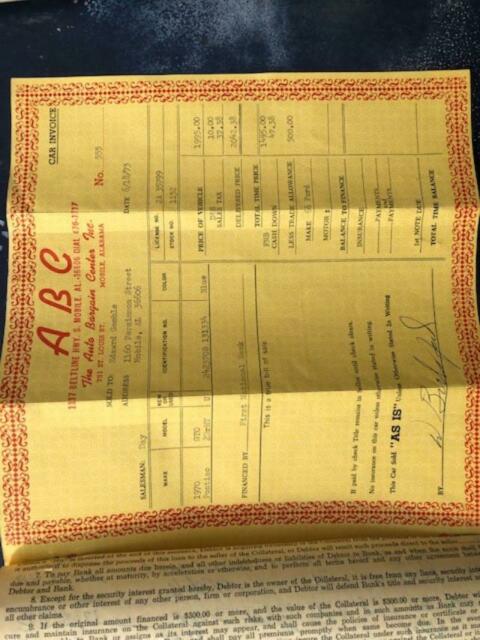 CAR INVOICE
A B C
BELTLINE HWY. S. MOBILE, AL. 36606 DIAL 476-
The Auto Bargain Center Inc.
751 ST. LOUIS ST. MOBILE, ALABAMA
No. 555
SALESMAN: Day
SOLD TO: Edward Gamble
DATE 6/18/73
ADDRESS 1160 Persimmon Street
Mobile, AL 36606
LICENSE NO.
STOCK NO. 1152
MAKE MODEL NEW OR USED IDENTIFICATION NO. COLOR
1970 GTO
Pontiac Blue
PRICE OF VEHICLE 1995.00
10.00
SALES TAX 37.38
DELIVERED PRICE 2042.38
FINANCED BY First National Bank
This is a true bill of sale
TOTAL TIME PRICE
CASH DOWN 1495.00
47.38
LESS TRADE ALLOWANCE 500.00
MAKE Ford
MOTOR #
BALANCE TO FINANCE
INSURANCE
PAYMENTS
PAYMENTS
1st NOTE DUE
TOTAL TIME BALANCE
If paid by check Title remains in seller until check clears.
No insurance on this car unless otherwise stated in writing
This Car Sold "AS IS" Unless Otherwise Stated In Writing
BY
7. To pay Bank all amounts due herein, and all other indebtedness or liabilities of Debtor to Bank, as and when the same shall
due and payable, whether at maturity, by acceleration or otherwise; and to perform all terms hereof and any other agreement
Debtor and Bank.
8. Except for the security interest granted hereby, Debtor is the owner of the Collateral, it is free from any lien, security
encumbrance or other interest of any other person, firm or corporation, and Debtor will defend Bank's title and security interest
all other claims.
9. If the original amount financed is $300.00 or more, and the value of the Collateral is $300.00 or more, Debtor
cure and maintain insurance on the Collateral against such risks